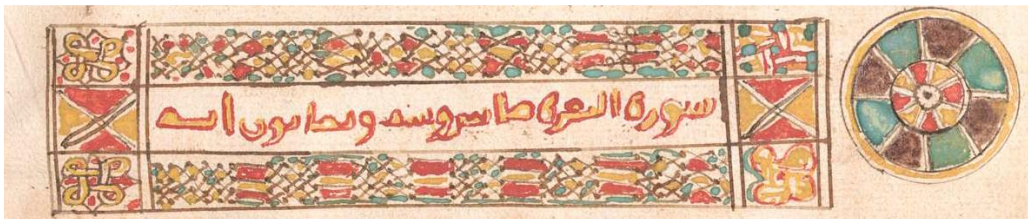 سورة البقرة مايتين وسته وثمانون ايه